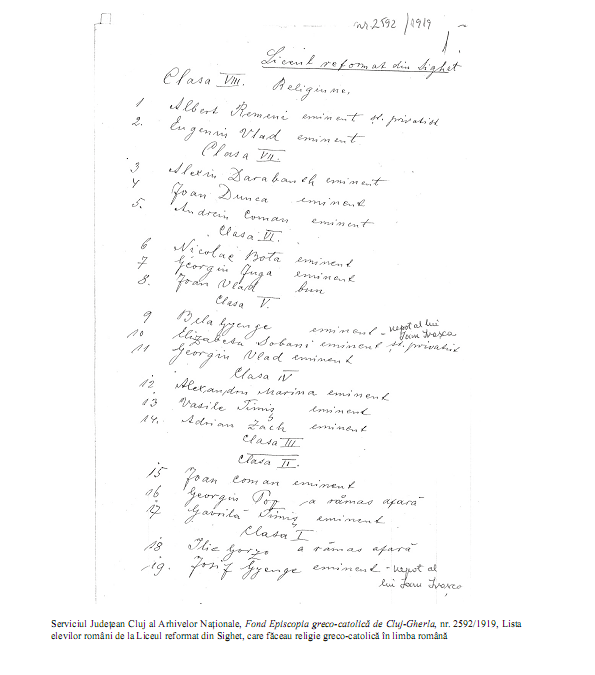 nr 2592/1919
Liceul reformat din Sighet
Clasa VIII. Religiune.
1 Albert Remeni eminent șt. privatist
2. Eugeniu Vlad eminent
Clasa VII.
3 Alexiu Darabanth eminent
4 Joan Dunca eminent
5. Andreiu Coman eminent
Clasa VI.
6 Nicolae Bota eminent
7 Georgiu Juga eminent
8. Joan Vlad bun
Clasa V.
9 Bela Gyenge eminent - nepot al lui Joan Ivașco
10 Elizabeta Sobani eminent șt. privatist
11 Georgiu Vlad eminent
Clasa IV
12. Alexandru Marina eminent
13 Vasile Timiș eminent
14. Adrian Zach eminent
Clasa III
Clasa II.
15 Joan Coman eminent
16 Georgiu Pop a rămas afară
17 Gavrilă Timiș eminent
Clasa I
18 Ilie Gorzo a rămas afară
19. Josif Gyenge eminent - nepot al
lui Joan Ivașco
Serviciul Județean Cluj al Arhivelor Naționale, Fond Episcopia greco-catolică de Cluj-Gherla, nr. 2592/1919, Lista
elevilor români de la Liceul reformat din Sighet, care făceau religie greco-catolică în limba română